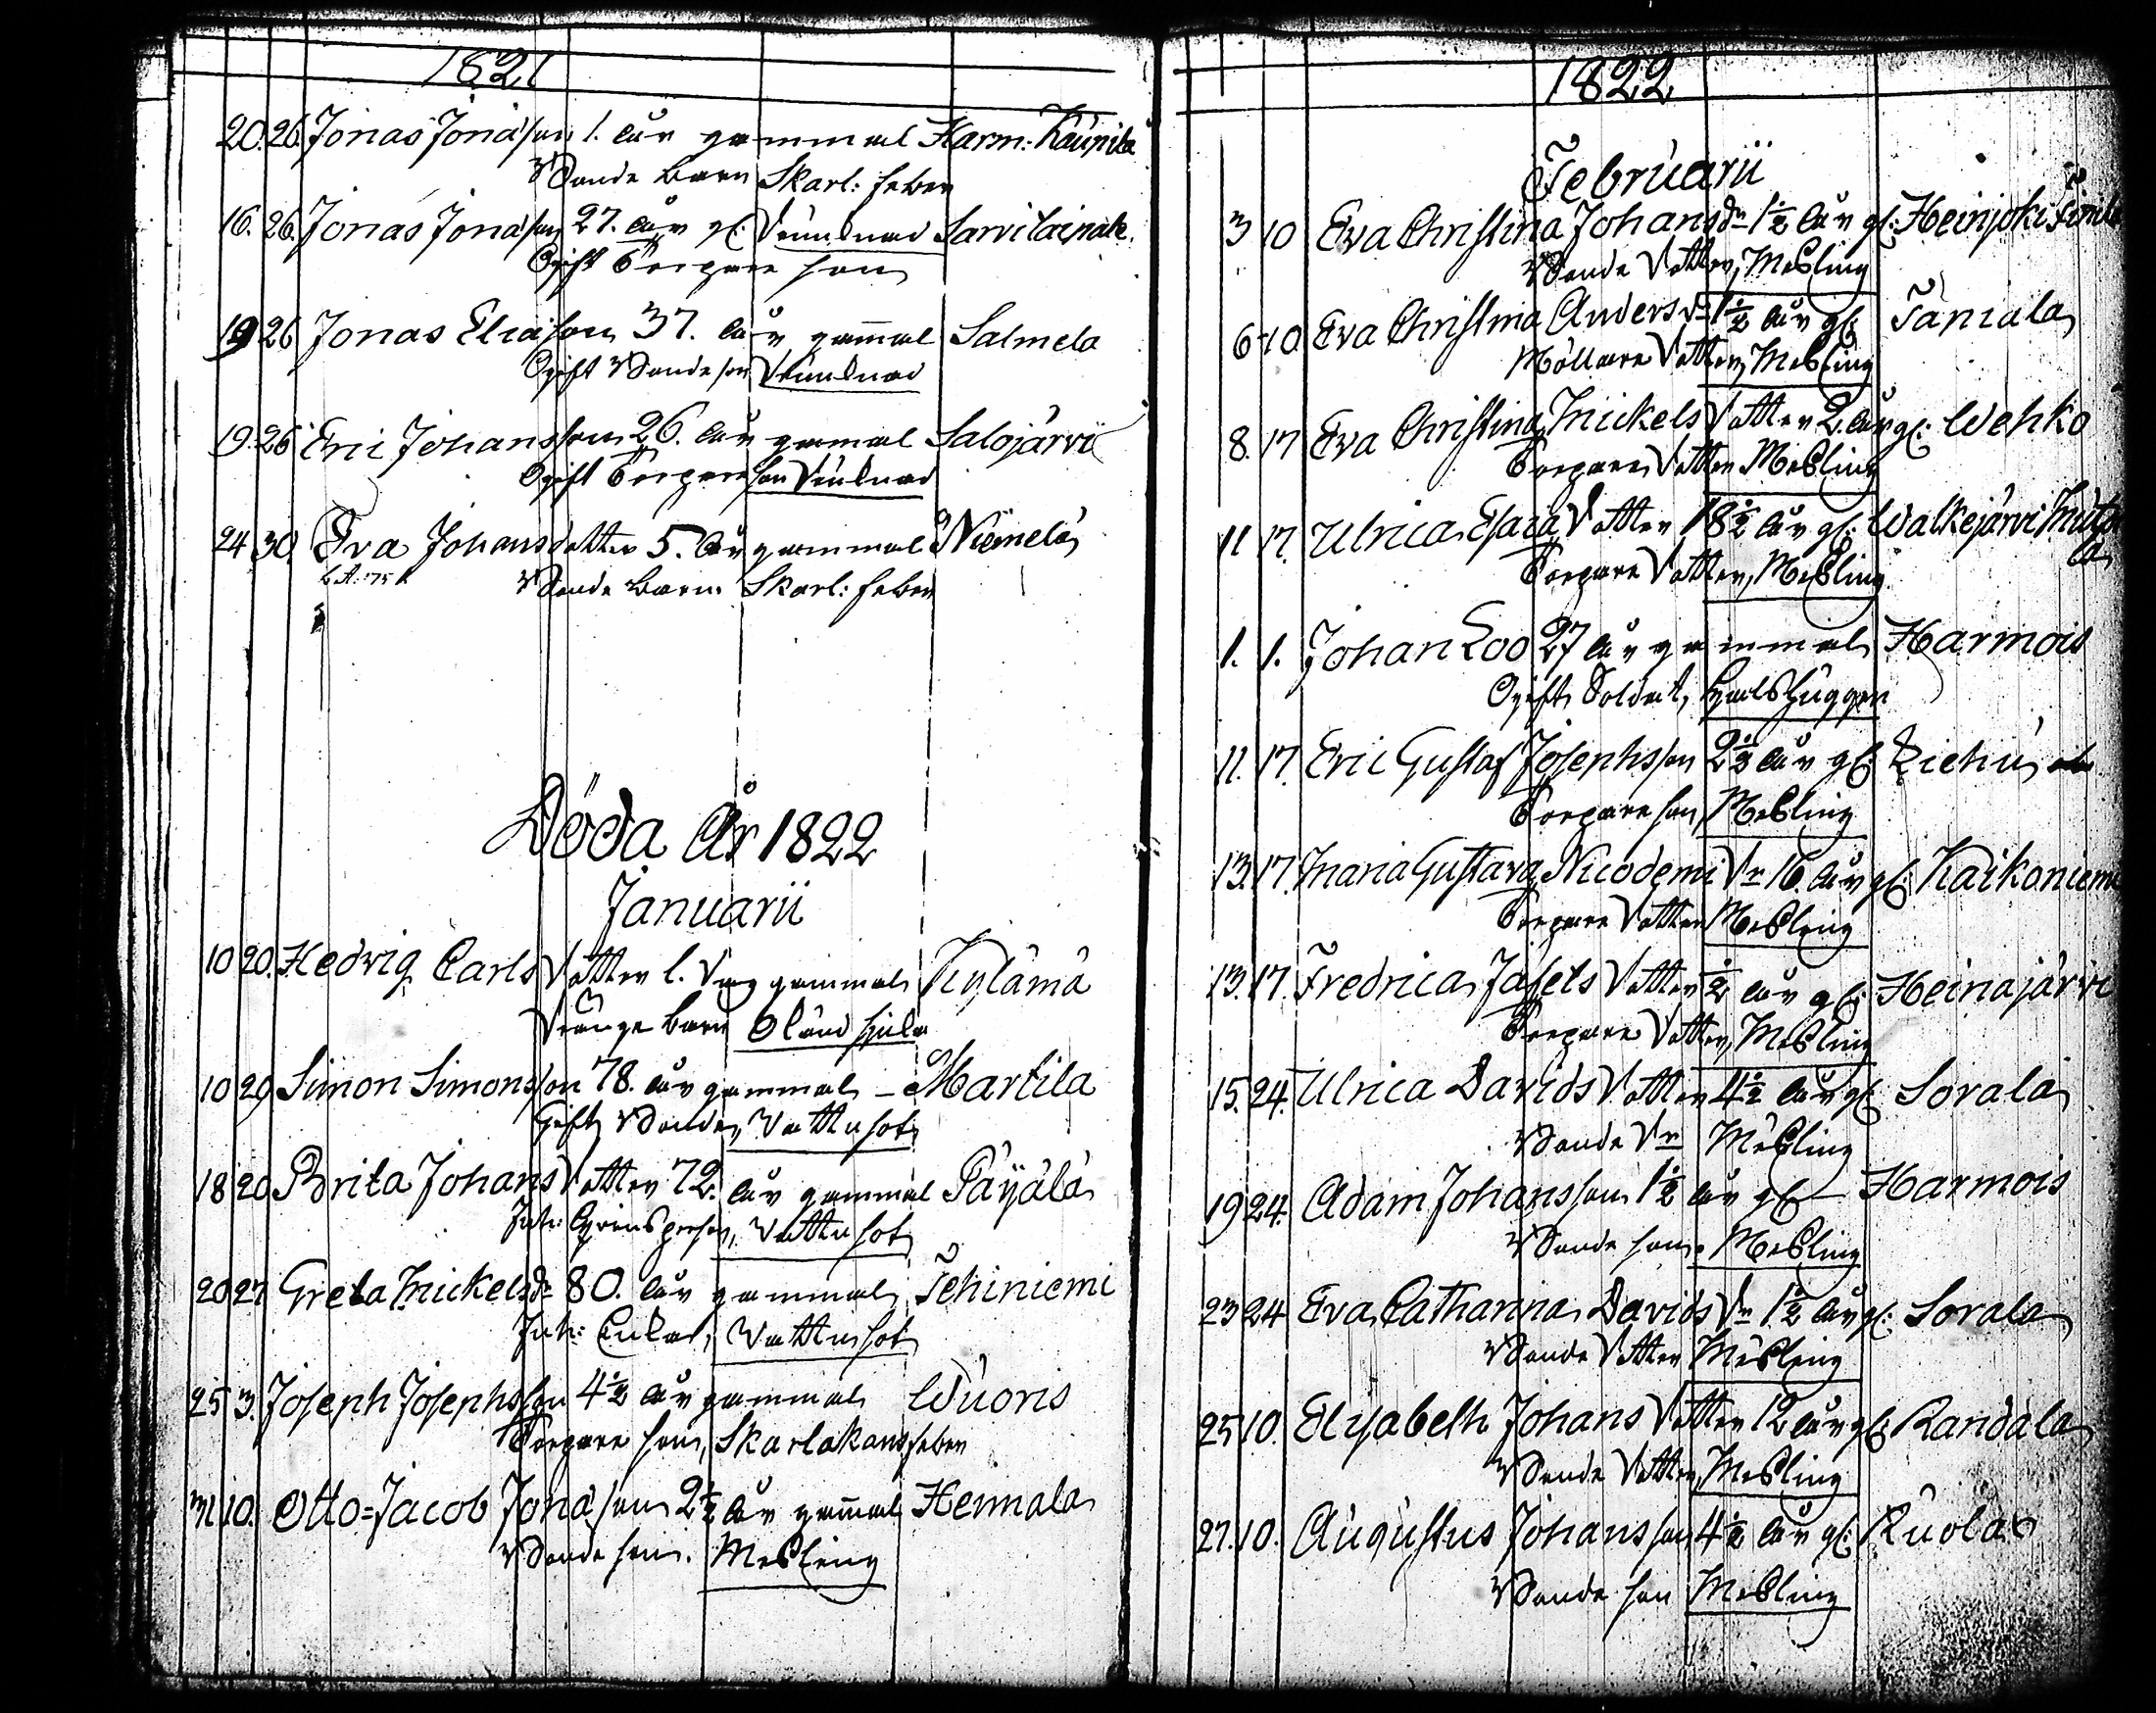 1821
20. 26. Jonas Jonasson 1. år gammal Harm: Kaupila
Bonde barn Skarl: feber
16. 26. Jonas Jonasson 27. år gl: Drunknad Sarvilainak.
Ogift Torpare son
19 26 Jonas Eliasson 37. år gammal Salmela
Ogift Bonde son Drunknad
19. 26 Eric Johansson 26. år gammal Salojärvi
Ogift Torpare son Drunknad
24 30. Eva Johansdotter 5. år gammal Niemelä
Bonde barn Skarl: feber
Döda År 1822
Januarii
10 20. Hedvig Carls dotter 1. dag gammal Kylämä
Dränge barn Okänd sjukd
10 20 Simon Simonsson 78. år gammal - Martila
Gift Bonde, Vattusot
18 20 Brita Johans dotter 72. år gammal Päyälä
Inh: Qvinsperson, Vattusot
20 27 Greta Mickels dr 80. år gammal Tehiniemi
Inh: Enka, Vattusot
25 3. Joseph Josephsson 4½ år gammal Wuoris
Torpare son, Skarlakansfeber
31. 10. Otto=Jacob Jonasson 2½ år gammal Heimala
Bonde son. Messling
1822
Februarii
3 10 Eva Christina Johans dr 1½ år gl: Heinjoki
Bonde dotter, Messling
6 10 Eva Christina Anders dr 1½ år gl: Taniala
Möllare dotter, Messling
8. 17 Eva Christina Mickels dotter 2. år gl: Wehko
Torpare dotter Messling
11 17. Ulrica Esaia dotter 18½ år gl: Walkejärvi
Torpare dotter, Messling
1. 1. Johan Loo 27 år gammal Harmois
Ogift Soldat,
11. 17. Eric Gustaf Josephsson 2½ år gl: Riehu
Torpare son, Messling
13. 17. Maria Gustava Nicodemi dr 16. år gl: Kaikoniemi
Torpare dotter Messling
13. 17. Fredrica Jafets dotter ½ år gl: Heinajärvi
Torpare dotter, Messling
15. 24. Ulrica Davids dotter 4½ år gl: Sorala
Bonde dr Messling
19 24. Adam Johansson 1½ år gl - Harmois
Bonde son. Messling
23 24 Eva Catharina Davids dr 1½ år gl: Sorala
Bonde dotter Messling
25 10. Elisabeth Johans dotter 12 år gl: Randala
Bonde dotter, Messling
27. 10. Augustus Johansson 4½ år gl: Ruola
Bonde son Messling